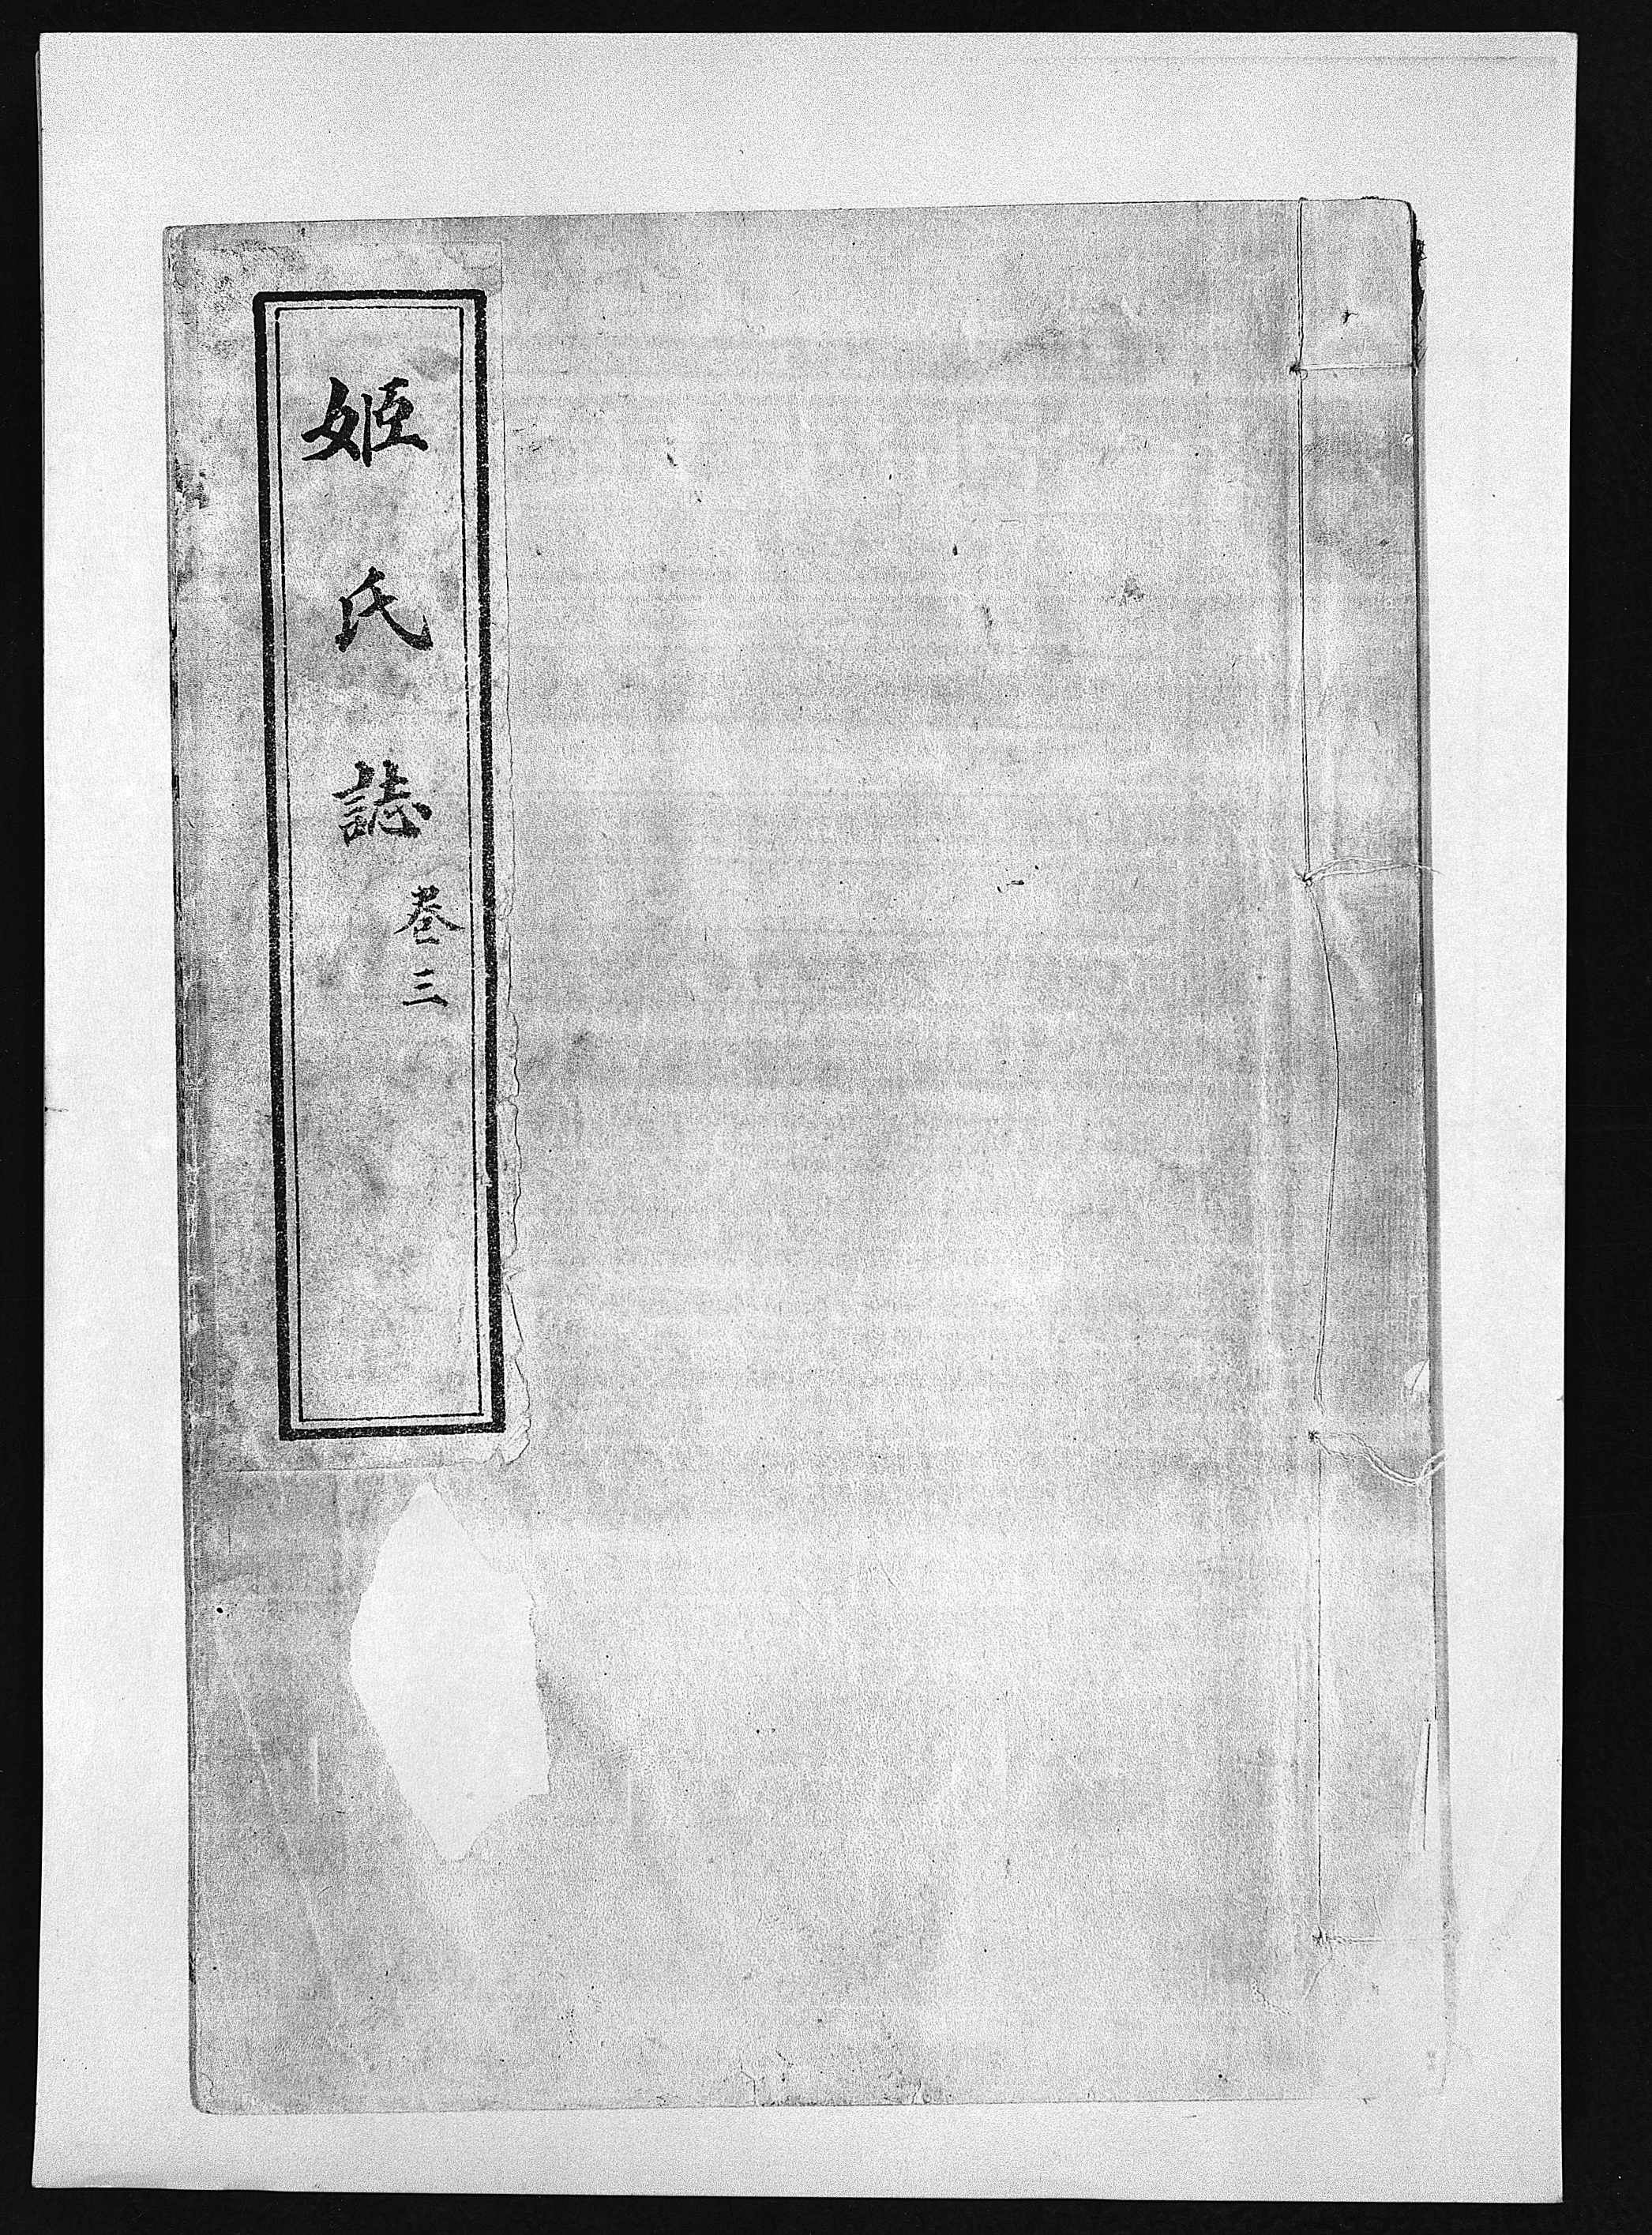 姬氏誌
卷三